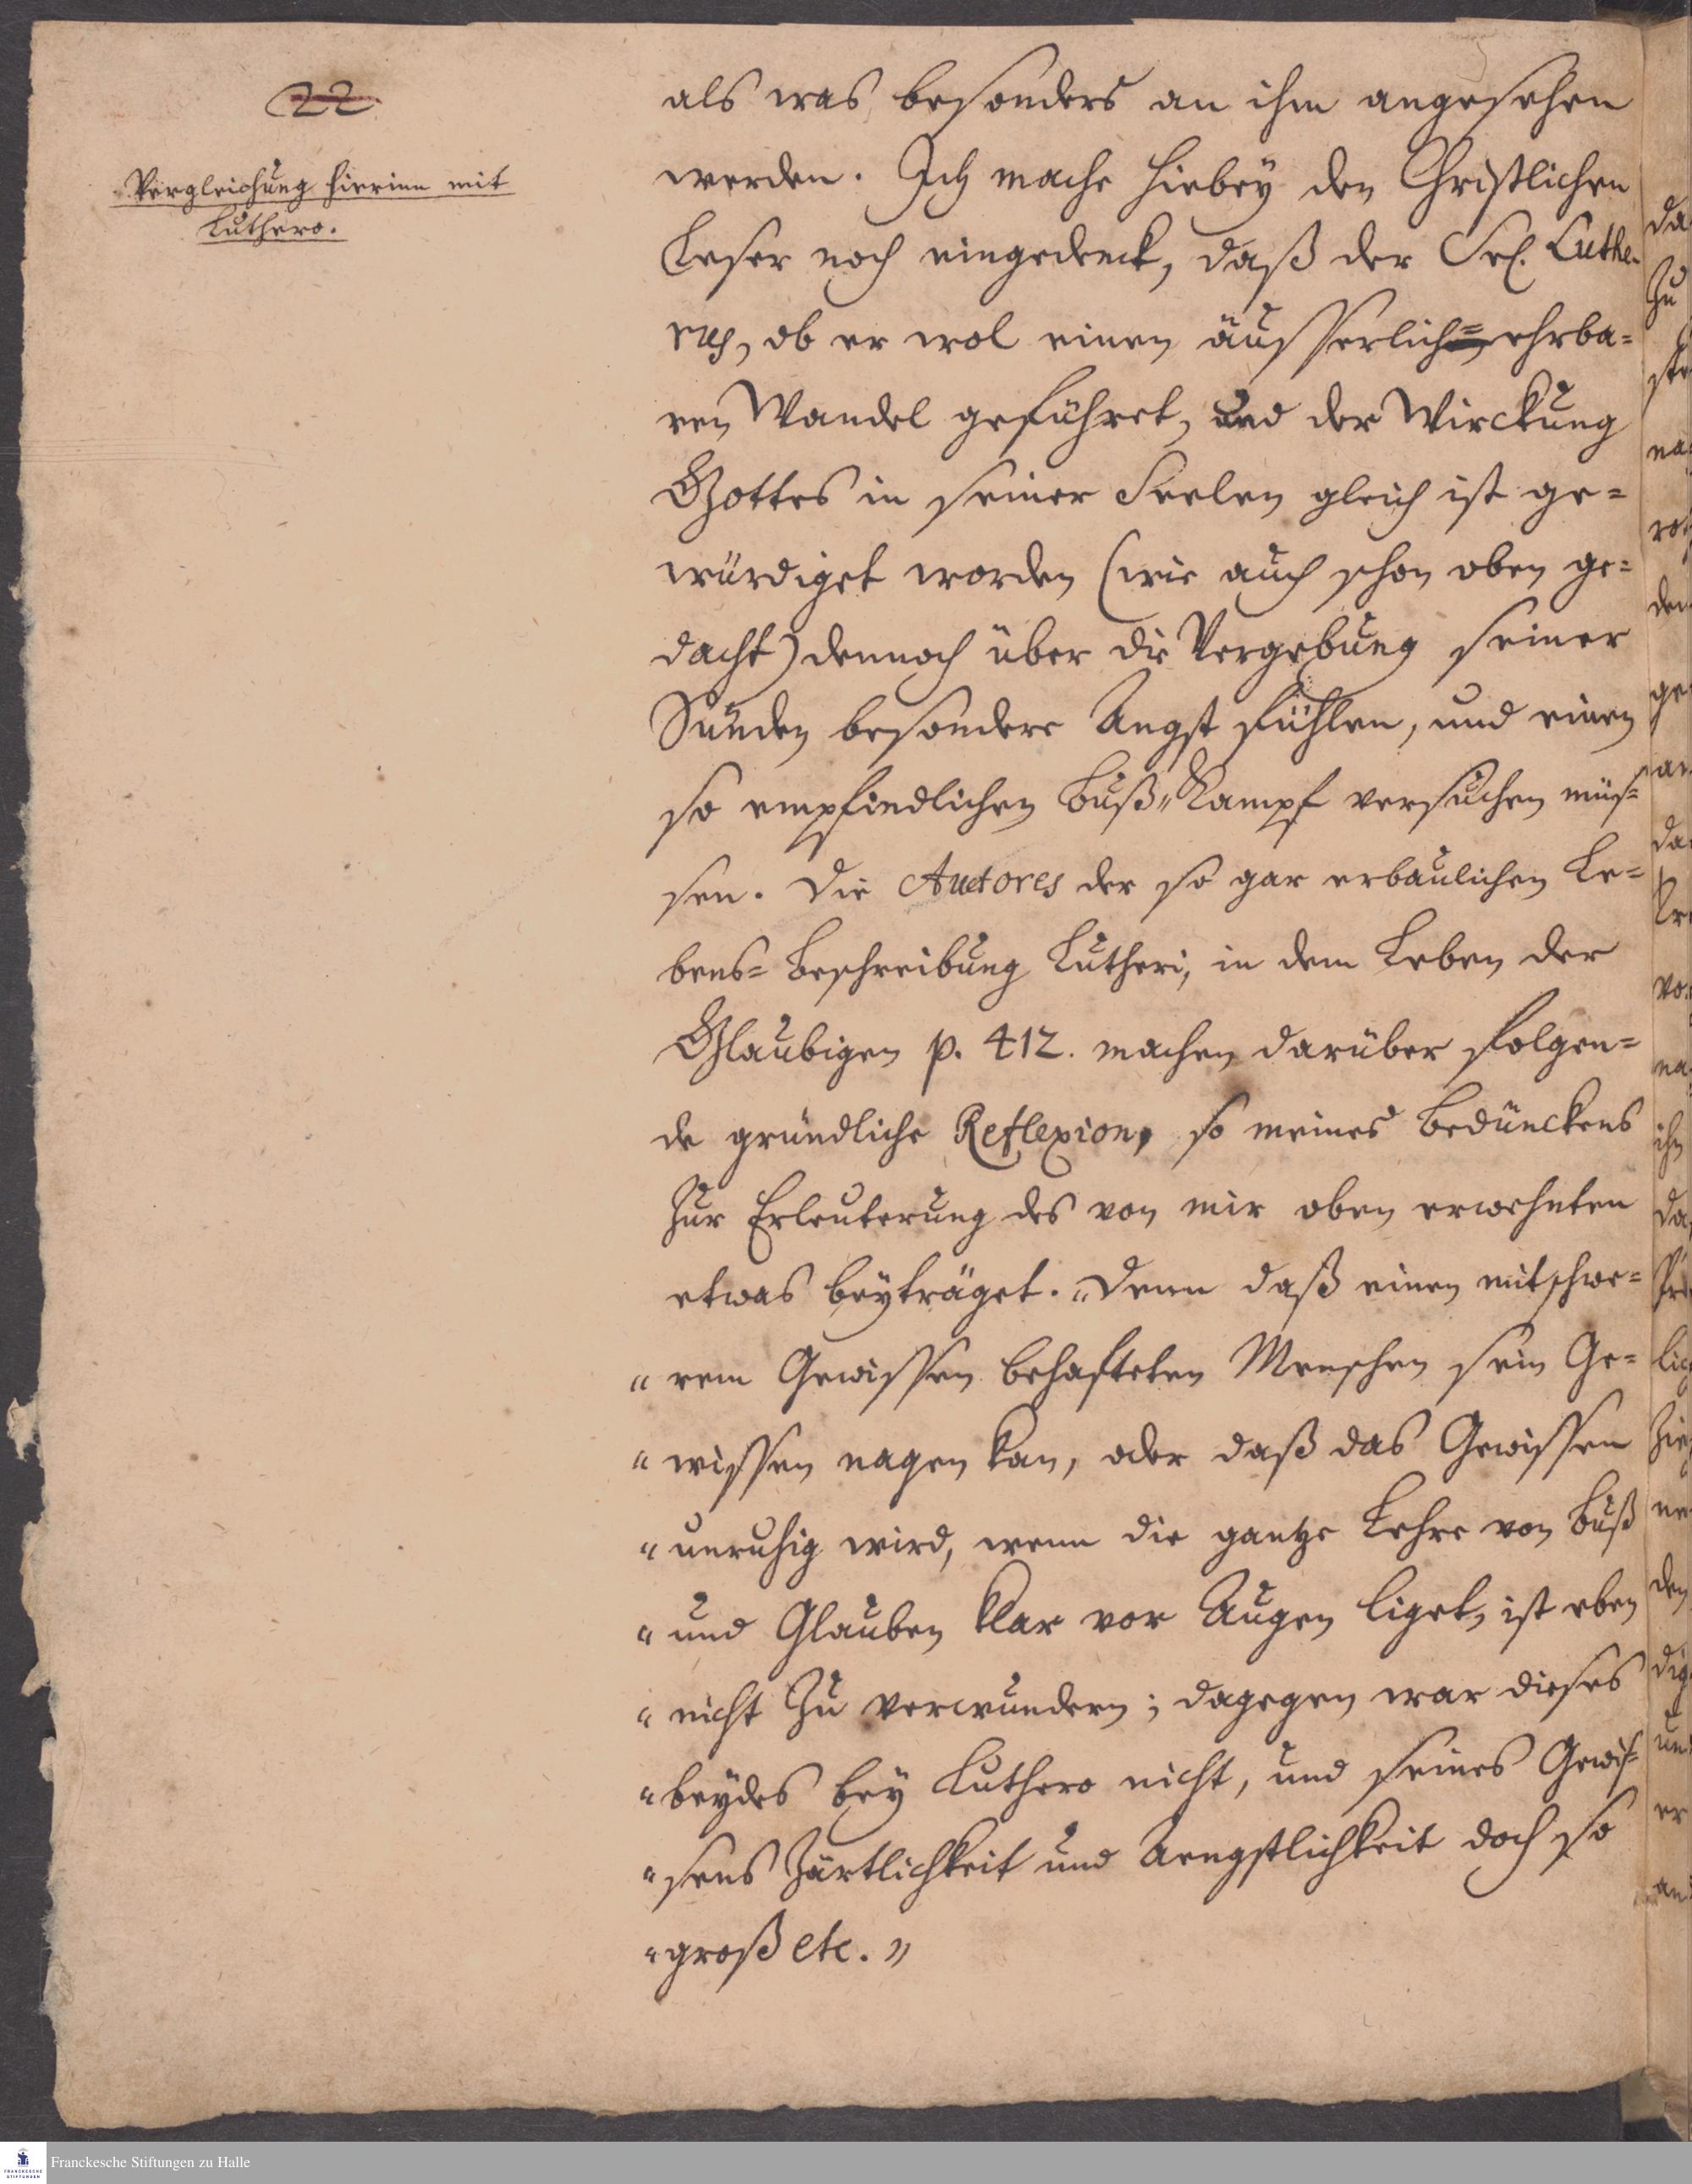 22
Vergleichung hierinn mit
Luthero.
als was besonders an ihm angesehen
werden. Ich mache hiebey den Christlichen
Leser noch eingedenck, daß der Sel. Luthe-
rus, ob er wol einen äusserlich= ehrba=
ren Wandel geführet, und der Wirckung
Gottes in seiner Seelen gleich ist ge=
würdiget worden (wie auch schon oben ge=
dacht) dennoch über die Vergebung seiner
Sünden besondere Angst fühlen, und einen
so empfindlichen Buß=Kampf versuchen müs=
sen. Die Autores der so gar erbaulichen Le=
bens=Beschreibung Lutheri, in dem Leben der
Glaubigen p. 412. machen darüber folgen=
de gründliche Reflexion, so meines Bedünckens
zur Erleuterung des von mir oben erwehnten
etwas beyträget. „Denn daß einen mit schwe=
„ rem Gewissen behafteten Menschen sein Ge=
„ wissen nagen kan, oder daß das Gewissen
„ unruhig wird, wenn die gantze Lehre von Buß
„ und Glauben klar vor Augen liget, ist eben
„ nicht zu verwundern; dagegen war dieses
„ beydes bey Luthero nicht, und seines Gewis=
„ sens Zärtlichkeit und Aengstlichkeit doch so
„ groß etc. "
Franckesche Stiftungen zu Halle